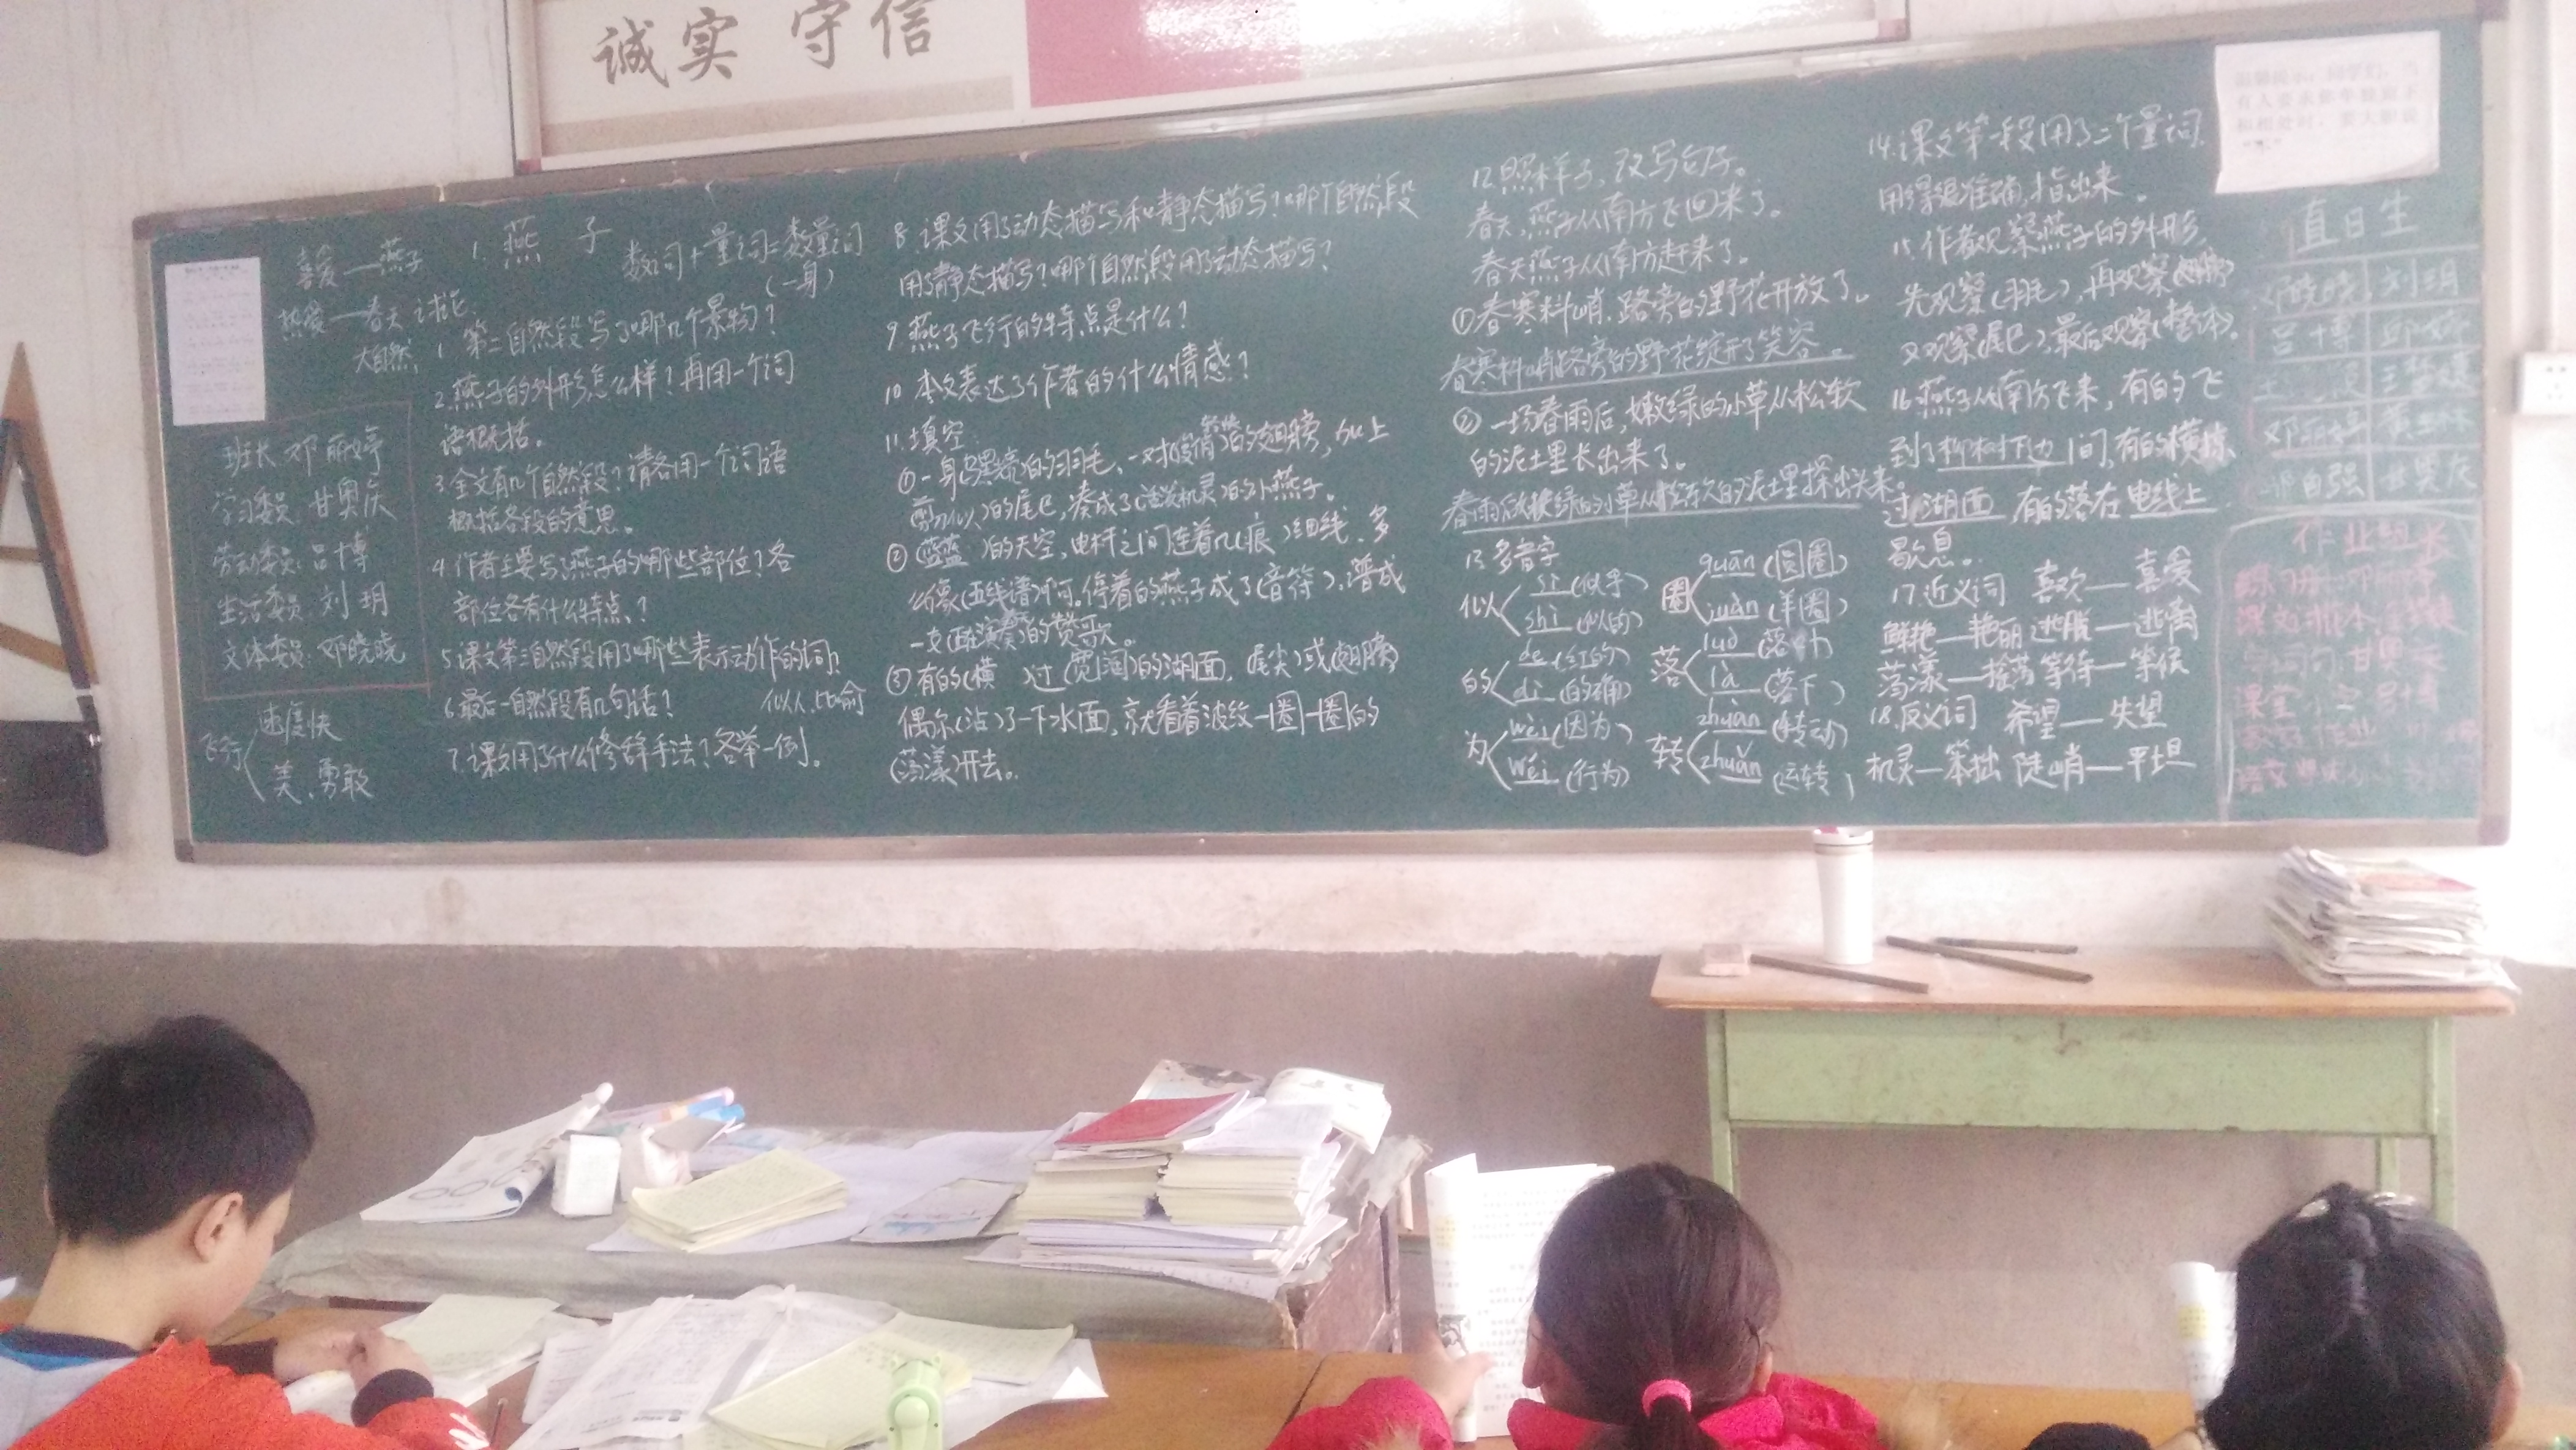 诚实 守信
喜爱——燕子
热爱——春天
大自然
班长 邓丽婷
学习委员 甘奥庆
劳动委员:吕博
生活委员 刘玥
文体委员:邓晓晓
飞行
速度快
美、勇敢
1. 燕 子
数词+量词=数量词
(一身)
讨论:
1. 第二自然段写了哪几个景物?
2. 燕子的外形怎么样?再用一个词
语概括。
3. 全文有几个自然段?请各用一个词语
概括各段的意思。
4. 作者主要写了燕子的哪些部位?各
部位各有什么特点?
5. 课文第三自然段用了哪些表示动作的词?
6. 最后一自然段有几句话?
似人.比喻
7. 课文用了什么修辞手法?各举一例。
8. 课文用了动态描写和静态描写?哪个自然段
用了静态描写?哪个自然段用了动态描写?
9. 燕子飞行的特点是什么?
10. 本文表达了作者的什么情感?
11. 填空:
①一身(乌黑亮)的羽毛、一对(俊俏轻快)的翅膀,加上
(剪刀似)的尾巴,凑成了(活泼机灵)的小燕子。
②(蓝蓝 )的天空,电杆之间连着几(痕 )细线,多
么像(五线谱)啊。停着的燕子成了(音符),谱成
一支(正演奏)的赞歌。
③有的(横 )过(宽阔)的湖面,(尾尖)或(翅膀)
偶尔(沾)了一下水面,就看着波纹一圈一圈的
(荡漾)开去。
12. 照样子、改写句子。
春天,燕子从南方飞回来了。
春天燕子从南方赶来了。
①春寒料峭.路旁的野花开放了。
春寒料峭路旁的野花绽开了笑容。
②一场春雨后,嫩绿的小草从松软
的泥土里长出来了。
春雨后嫩绿的小草从松软的泥土里探出头来。
13. 多音字
似 sì (似乎) shì (似的)
圈 quān (圆圈) juàn (羊圈)
的 de (红的) dí (的确)
落 là (落下)
为 wèi (因为) wéi (行为)
转 zhuàn (转动) zhuǎn (运转)
14. 课文第一段用了二个量词.
用得很准确,指出来。
15. 作者观察燕子的外形,
先观察(羽毛),再观察(翅膀)
又观察(尾巴),最后观察(整体)。
16. 燕子从南方飞来,有的飞
到了柳树下边 间,有的横掠
过湖面 有的落在电线上
歇息。
17. 近义词 喜欢——喜爱
鲜艳——艳丽 逃脱——逃离
荡漾——摇荡 等待——等候
18. 反义词 希望——失望
机灵—笨拙 陡峭——平坦
值日生
邓晓晓 刘玥
吕博
邓丽婷
自强 甘奥庆
作业组长